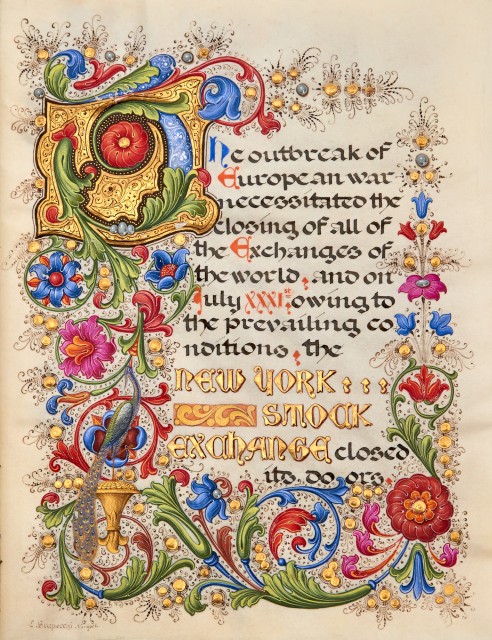 The outbreak of
European war
necessitated the
closing of all of
the Exchanges of
the world, and on
July XXXIst. owing to
the prevailing co
nditions, the
NEW YORK : : :
STOCK
EXCHANGE closed
its do ors.